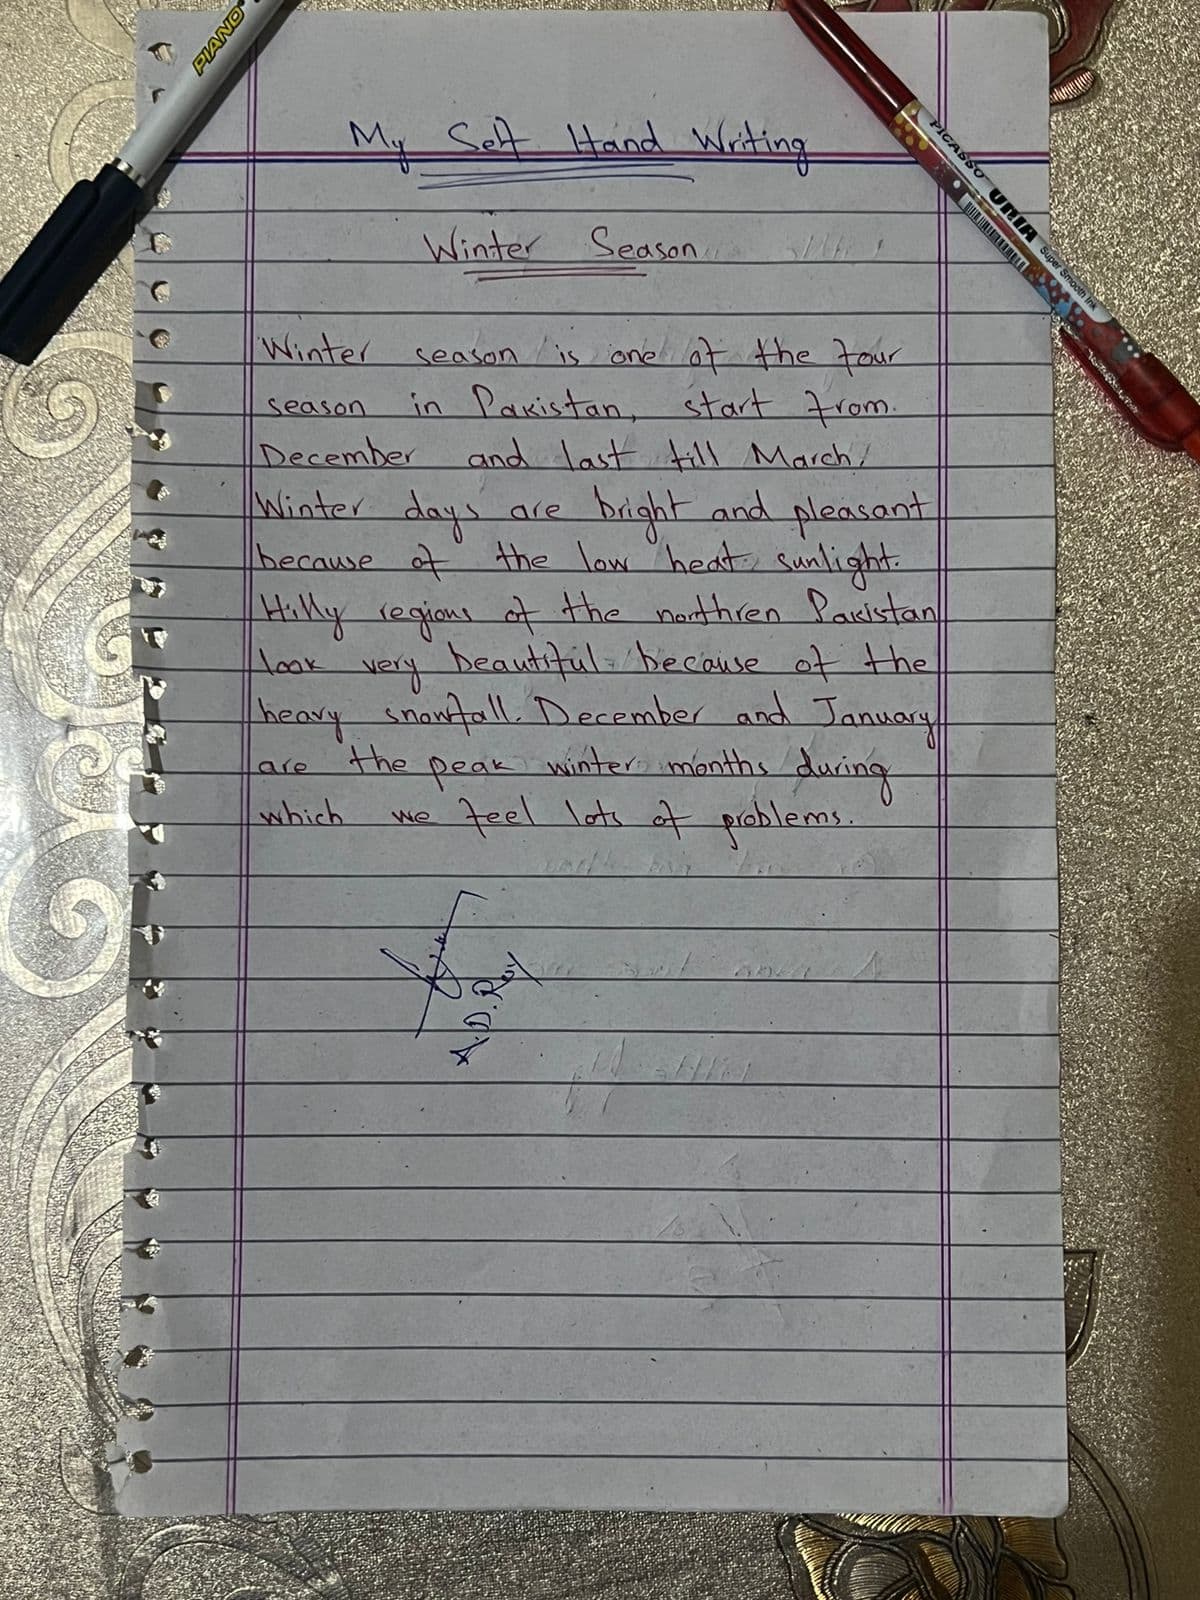 PIANO
PICASSO URIA Super Smooth Ink
My Self Hand Writing
Winter Season
Winter season is one of the four
season in Pakistan, start from
December and last till March,
Winter days are bright and pleasant
because of the low heat sunlight.
Hilly regions of the northren Pakistan
look very beautiful because of the
heavy snowfall. December and January
are the peak winter months during
which we feel lots of problems.
A.D. Roy